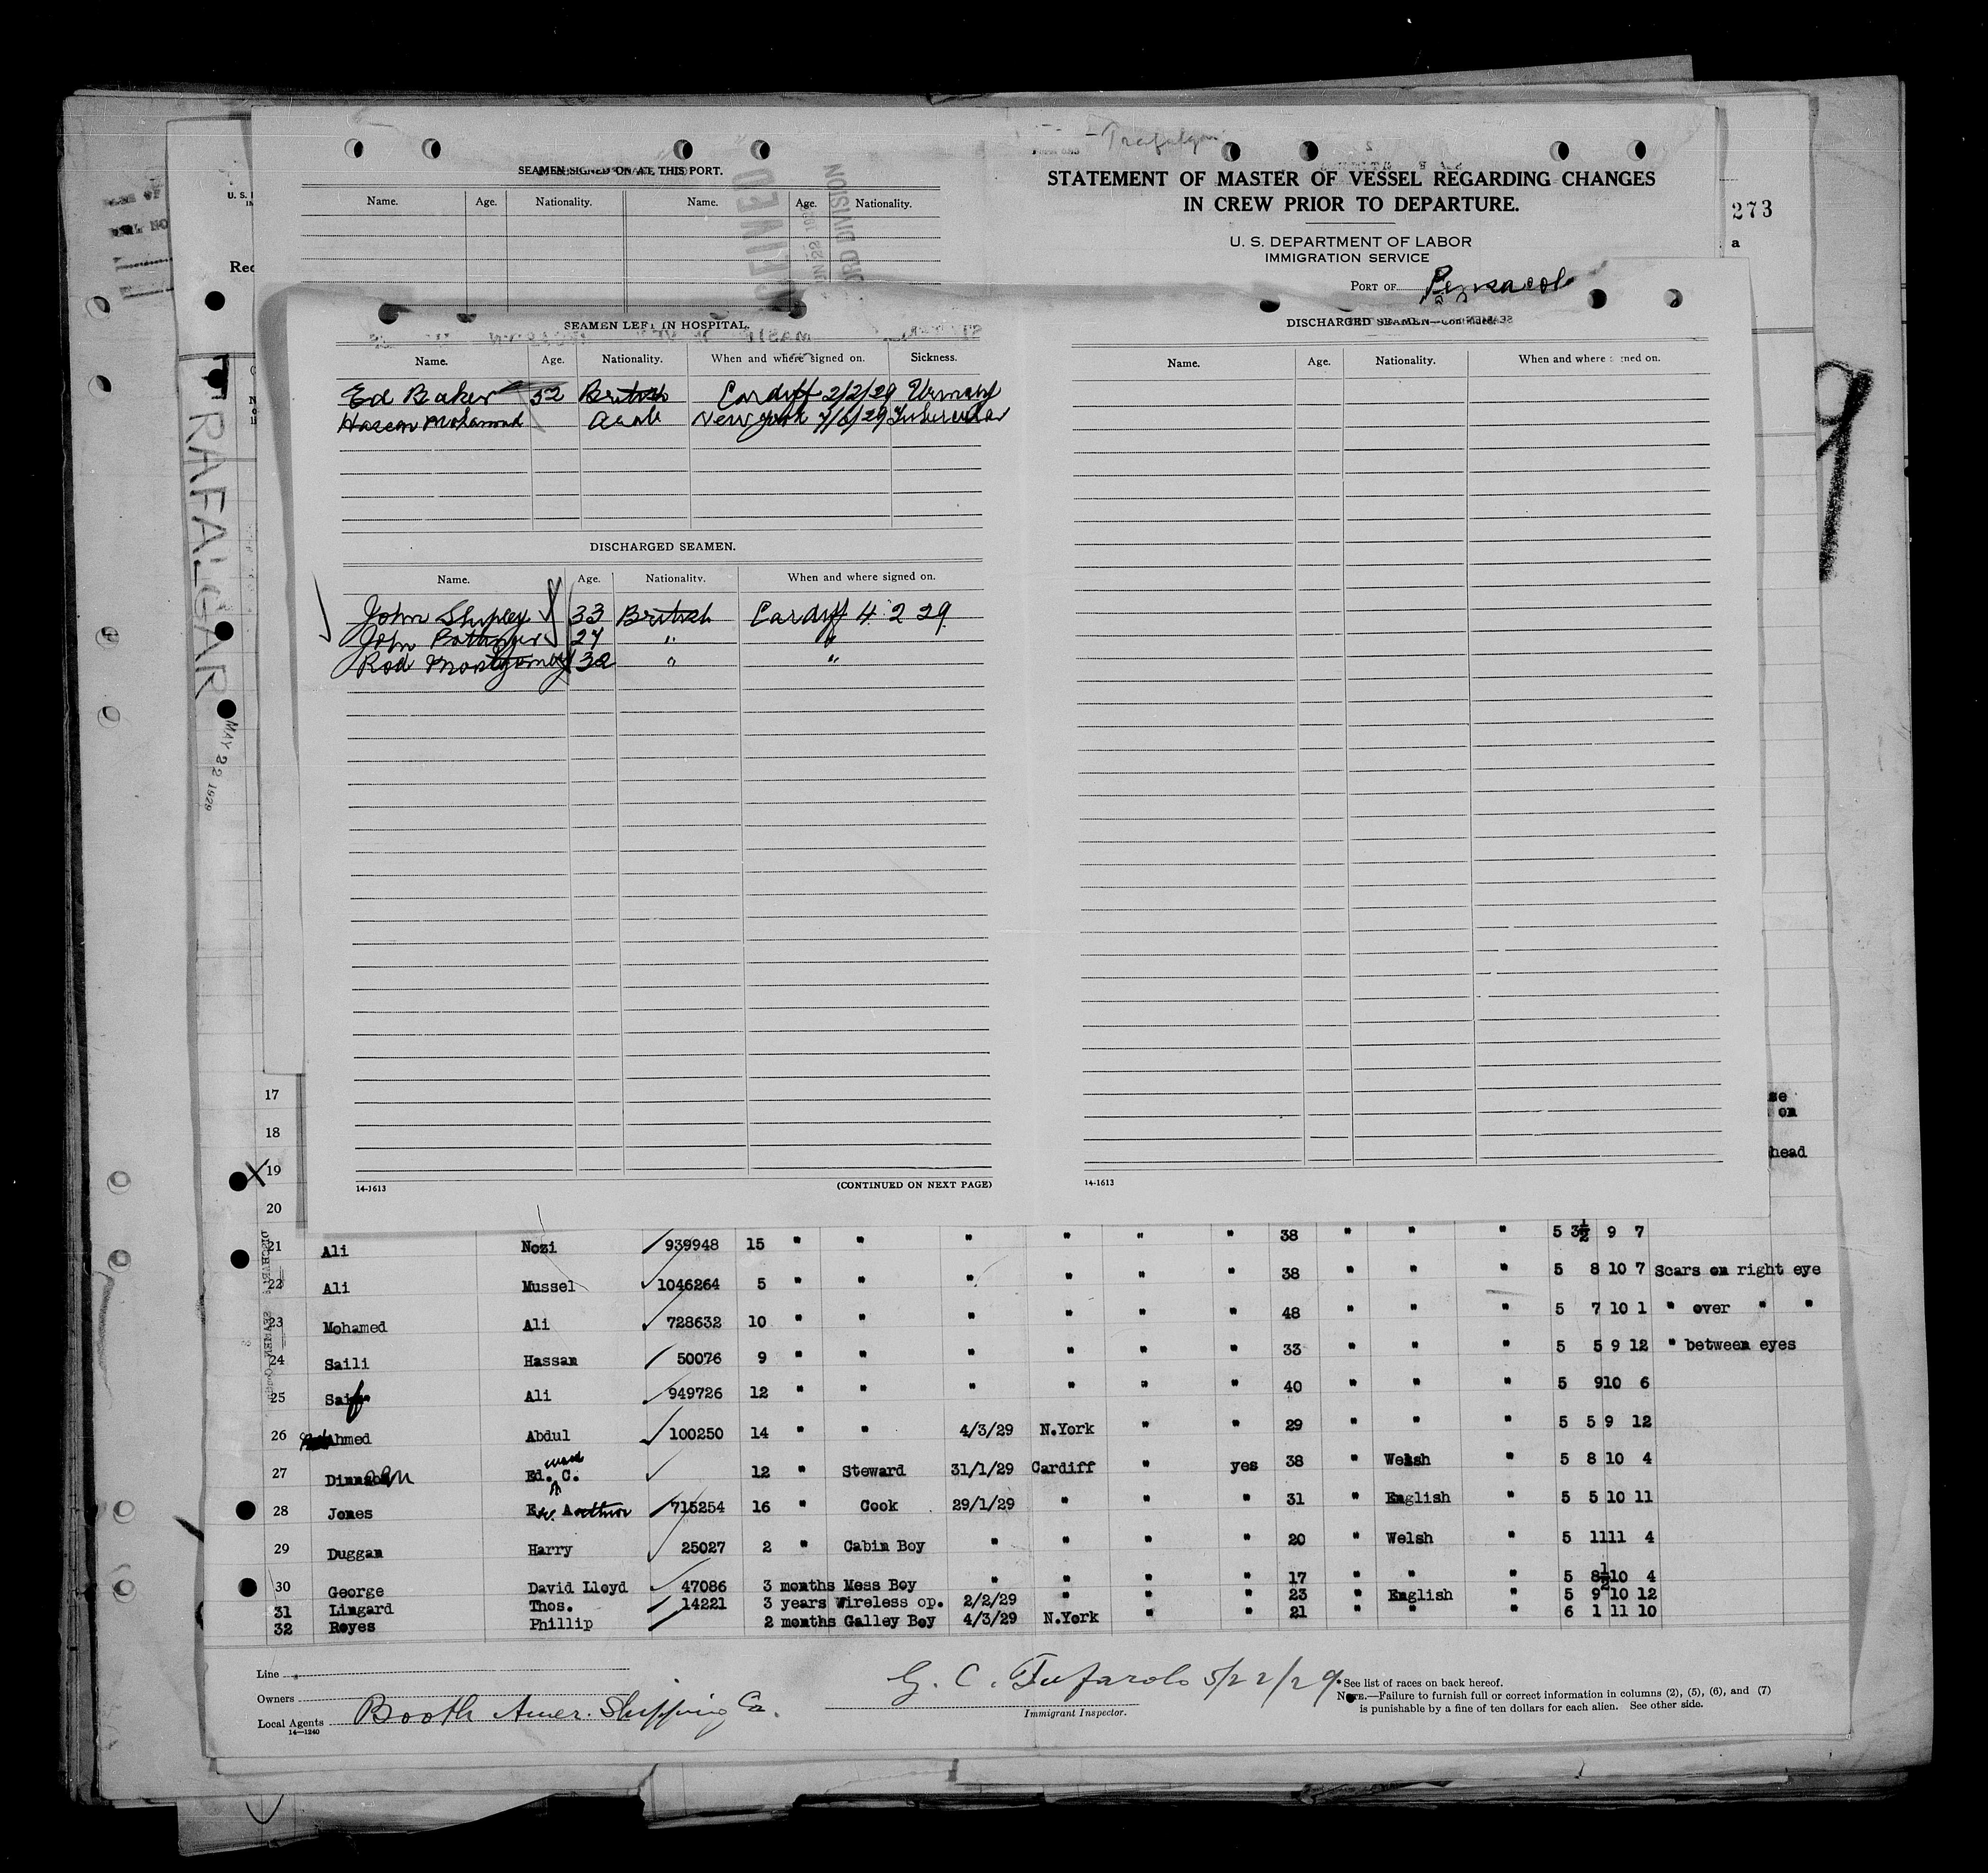 Trafalgar
SEAMEN SIGNED ON AT THIS PORT.
Name. Age. Nationality. Name. Age. Nationality.
STATEMENT OF MASTER OF VESSEL REGARDING CHANGES
IN CREW PRIOR TO DEPARTURE.
U. S. DEPARTMENT OF LABOR
IMMIGRATION SERVICE
PORT OF
273
a
U. S.
Rec
TRAFALGAR
MAY 22 1929
SEAMEN LEFT IN HOSPITAL.
Name. Age. Nationality. When and where signed on. Sickness.
Ed Baker 52 British Cardiff 2/2/29
Hassan Mohamed Arab New York
DISCHARGED SEAMEN.
Name. Age. Nationality. When and where signed on.
John Shipley 33 British Cardiff 4 2 29
John 27 " "
Rod Montgomery 32 " "
14-1613 (CONTINUED ON NEXT PAGE)
DISCHARGED SEAMEN—Continued.
Name. Age. Nationality. When and where signed on.
14-1613
17
18
19
20
on
head
21 Ali Nozi 939948 15 " " " " " " 38 " " " 5 3½ 9 7
22 Ali Mussel 1046264 5 " " " " " " 38 " " " 5 8 10 7 Scars on right eye
23 Mohamed Ali 728632 10 " " " " " " 48 " " " 5 7 10 1 " over " "
24 Saili Hassan 50076 9 " " " " " " 33 " " " 5 5 9 12 " between eyes
25 Saif Ali 949726 12 " " " " " " 40 " " " 5 9 10 6
26 Ahmed Abdul 100250 14 " " 4/3/29 N.York " " 29 " " " 5 5 9 12
27 Ed.ward C. 12 " Steward 31/1/29 Cardiff " yes 38 " Welsh " 5 8 10 4
28 Jones Arthur 715254 16 " Cook 29/1/29 " " " 31 " English " 5 5 10 11
29 Duggan Harry 25027 2 " Cabin Boy " " " " 20 " Welsh " 5 11 11 4
30 George David Lloyd 47086 3 months Mess Boy " " " " 17 " " " 5 8½ 10 4
31 Lingard Thos. 14221 3 years Wireless op. 2/2/29 " " " 23 " English " 5 9 10 12
32 Reyes Phillip 2 months Galley Boy 4/3/29 N.York " " 21 " " " 6 1 11 10
Line
Owners
Local Agents Booth Amer. Shipping Co.
14—1240
G. C. Tufarolo 5/22/29
Immigrant Inspector.
*See list of races on back hereof.
NOTE.—Failure to furnish full or correct information in columns (2), (5), (6), and (7)
is punishable by a fine of ten dollars for each alien. See other side.